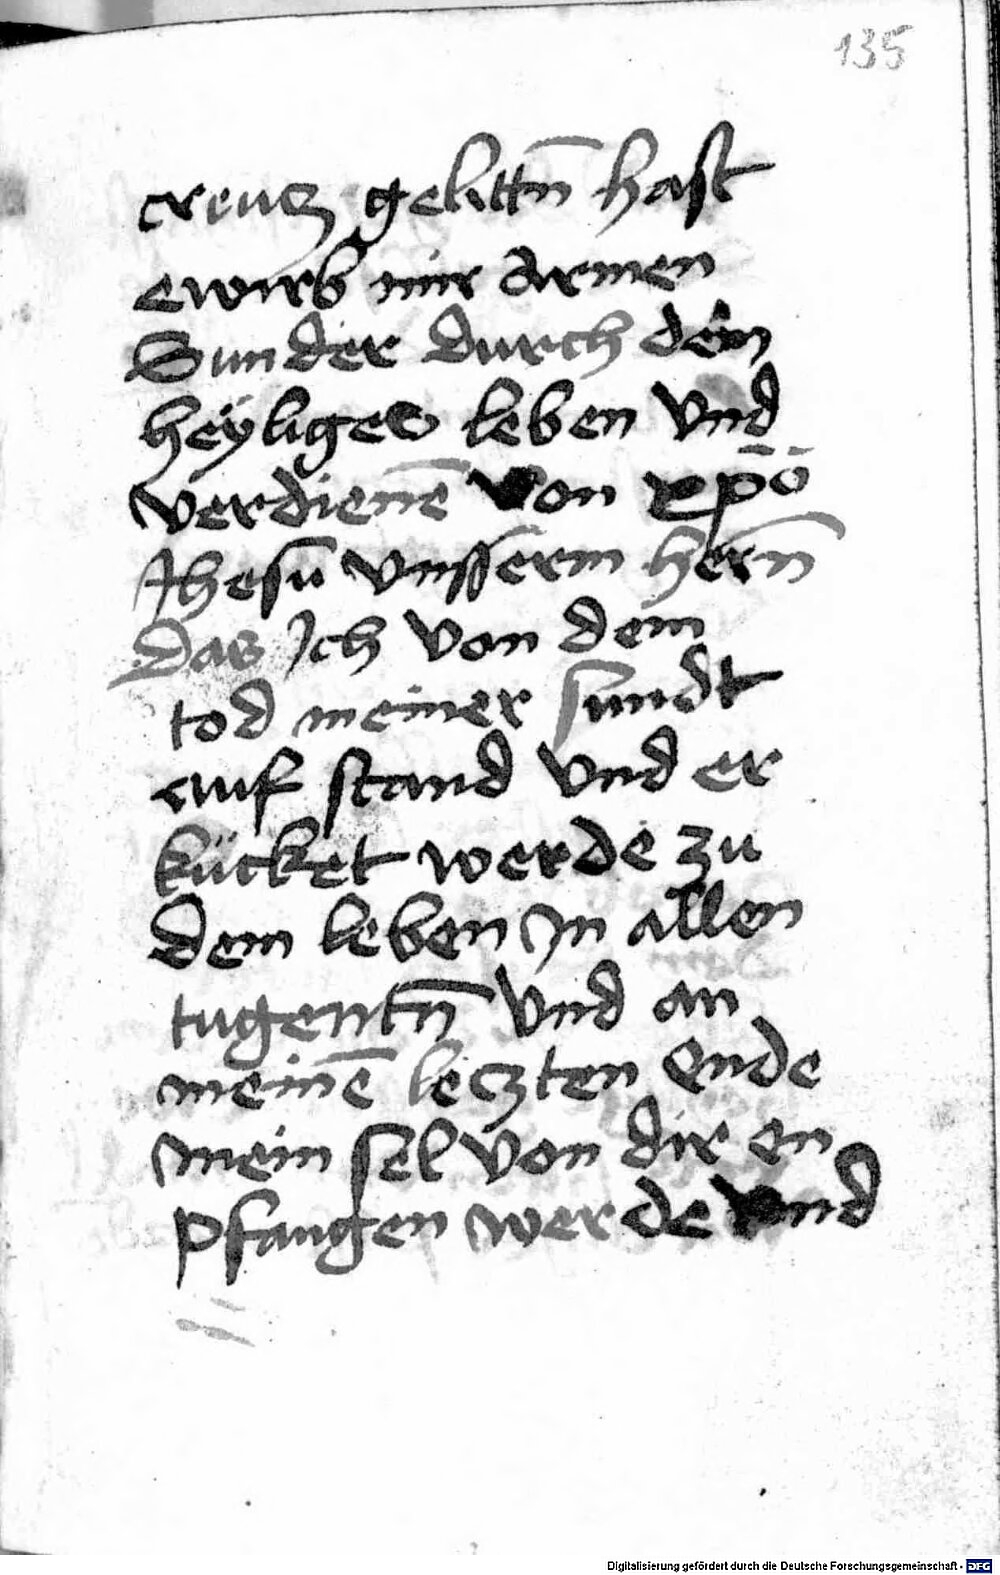 135
creucz gelittn̄ hast
ewirb mir Armen
Sunder durch dein
heÿliges leben vnd
verdienē von xp̄ō
Jhesū vnsserm hern̄
Das Jch von dem
tod meiner sundt
auf stand vnd er
kücket werde zu
dem leben jn allen
tugentn̄ vnd an
meinē leczten Ende
mein sel von dir en
pfangen werde vnd
Digitalisierung gefördert durch die Deutsche Forschungsgemeinschaft - DFG